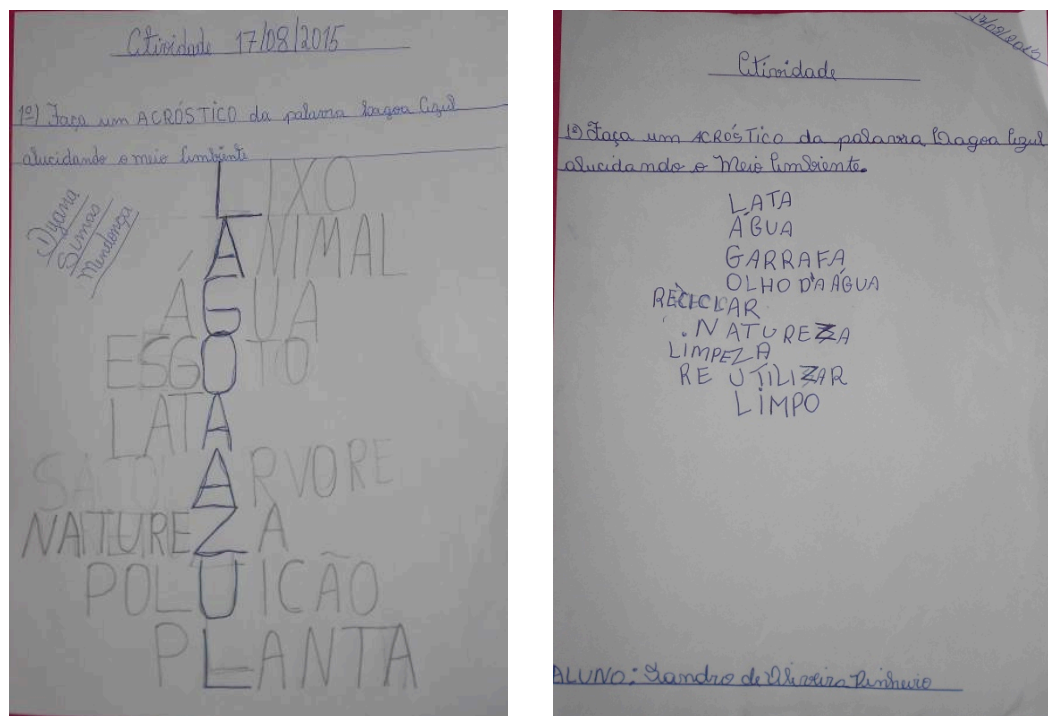 Atividade 17/08/2015
1º) Faça um ACRÓSTICO da palavra Lagoa Azul
alucidando o meio Ambiente
Dyana
Simas
Mendonça
LIXO
ANIMAL
ÁGUA
ESGOTO
LATA
ARVORE
NATUREZA
POLUIÇÃO
PLANTA
17/08/2015
Atividade
1º) Faça um ACRÓSTICO da palavra Lagoa Azul
alucidando o Meio Ambiente.
LATA
ÁGUA
GARRAFA
OLHO D'A ÁGUA
RECICLAR
NATUREZA
LIMPEZA
RE UTILIZAR
LIMPO
ALUNO: Sandro de Oliveira Pinheiro